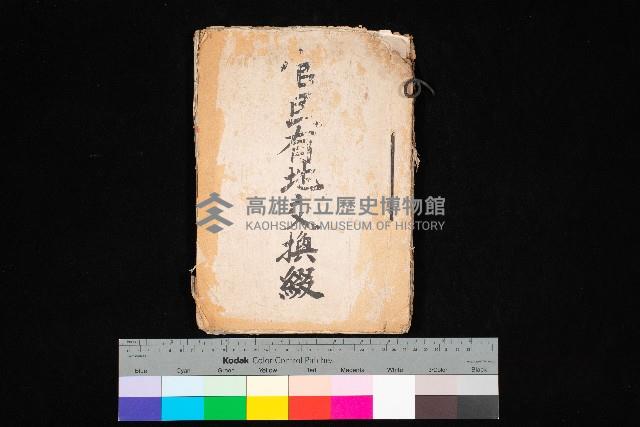 官民有地交換綴
高雄市立歷史博物館
KAOHSIUNG MUSEUM OF HISTORY
Kodak Color Control Patches
Blue Cyan Green Yellow Red Magenta White 3/Color Black